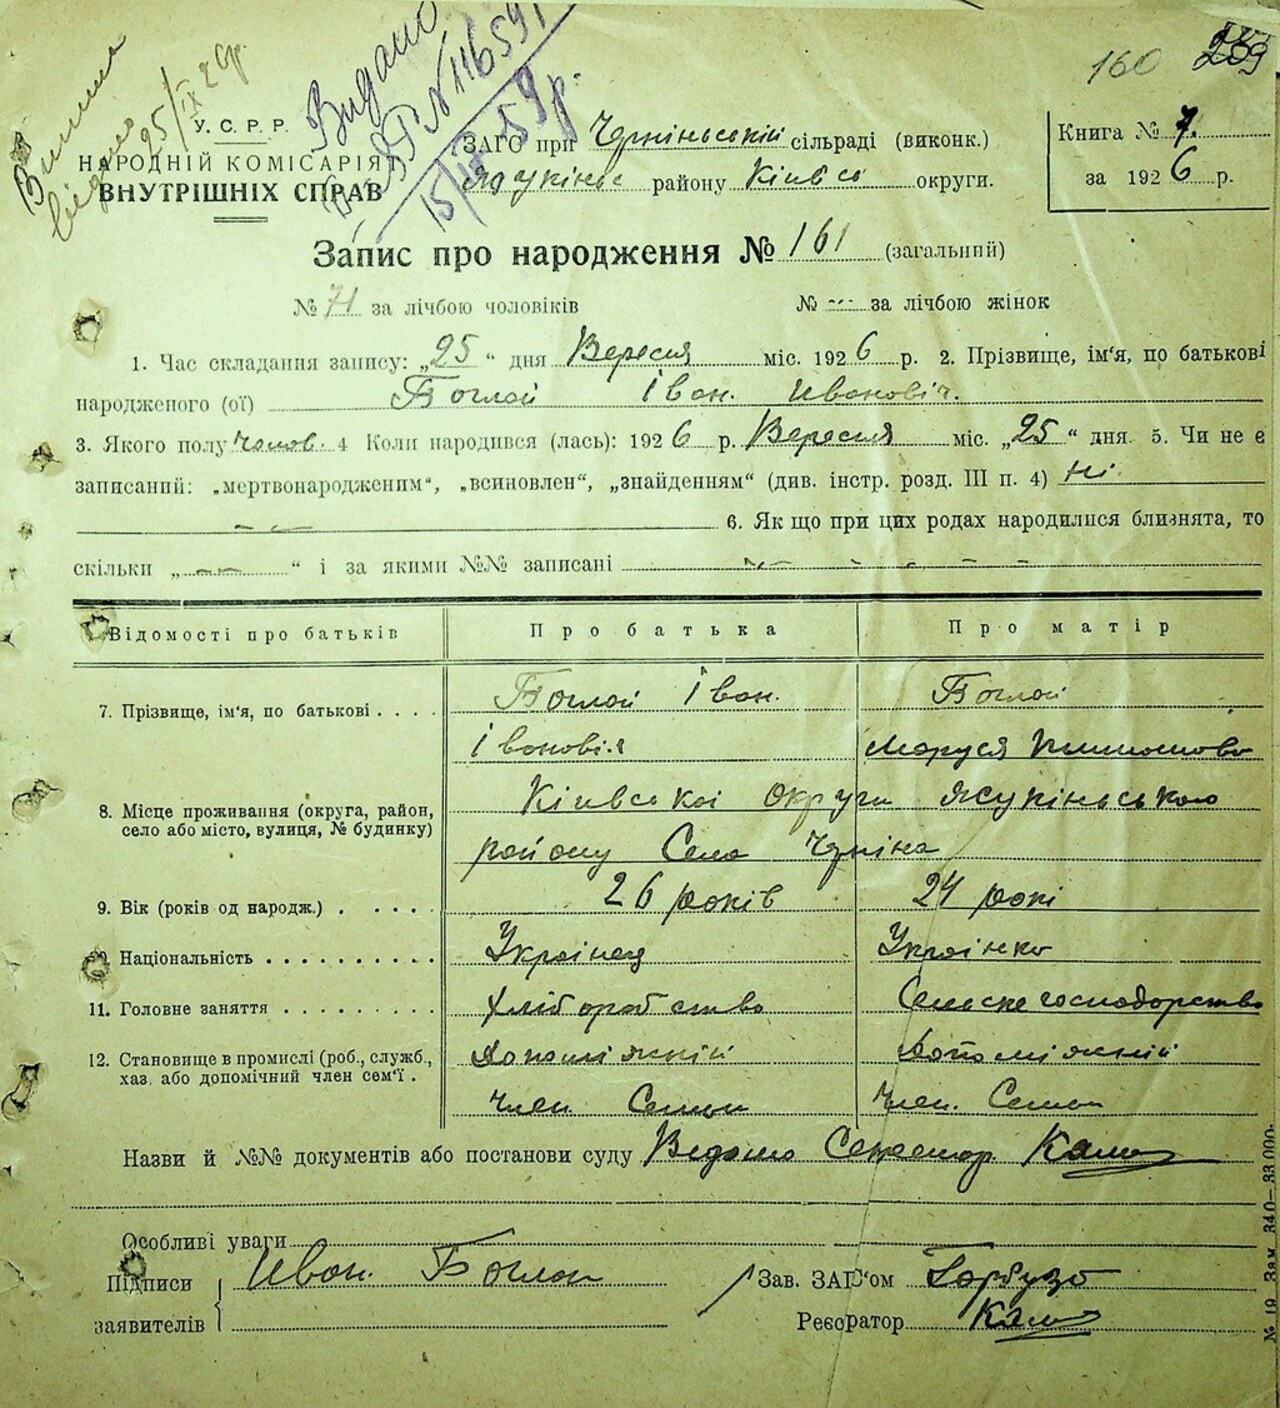 160 209
Видано
№ 116591
15/ 59 р.
25/IX 26р.
У. С. Р. Р.
НАРОДНІЙ КОМІСАРІЯТ
ВНУТРІШНІХ СПРАВ
ЗАГС при сільраді (виконк.)
району Київсь округи.
Книга № 7.
за 1926 р.
Запис про народження № 161 (загальний)
№ 71 за лічбою чоловіків № --- за лічбою жінок
1. Час складання запису: „25“ дня Вересня міс. 1926 р. 2. Прізвище, ім'я, по батькові
народженого (ої) Боглай Іван. Иванович.
3. Якого полу чолов. 4 Коли народився (лась): 1926 р. Вересня міс. „25“ дня. 5. Чи не є
записаний: „мертвонародженим“, „всиновлен“, „знайденням“ (див. інстр. розд. III п. 4) ні.
6. Як що при цих родах народилися близнята, то
скільки „ — “ і за якими №№ записані
Відомості про батьків Про батька Про матір
7. Прізвище, ім'я, по батькові . . . . Боглай Іван. Боглай
Івановіч Маруся
8. Місце проживання (округа, район, село або місто, вулиця, № будинку) Кіивськоі округи
району Село
9. Вік (років од народж.) . . . . . 26 років 24 рокі
Національність . . . . . . . . . . Украінец Украінка
11. Головне заняття . . . . . . . . . Хліборобство Сельске господорство
12. Становище в промислі (роб., служб., хаз. або допомічний член сем'ї . Допоміжній Допоміжній
Член Семьи Член. Семьи
Назви й №№ документів або постанови суду Ведомо Секретар.
Особливі уваги
Підписи Иван. Боглай Зав. ЗАГС'ом Гарбузо
заявителів Реєсратор
№ 19 Зам. 340—33.000.